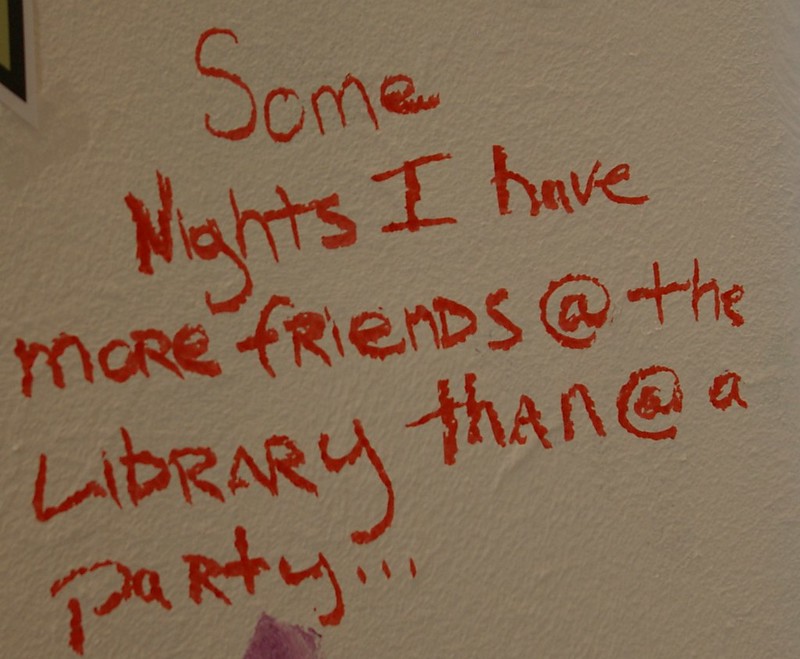 Some
Nights I have
more friends @ the
LibRARy than @ a
party...